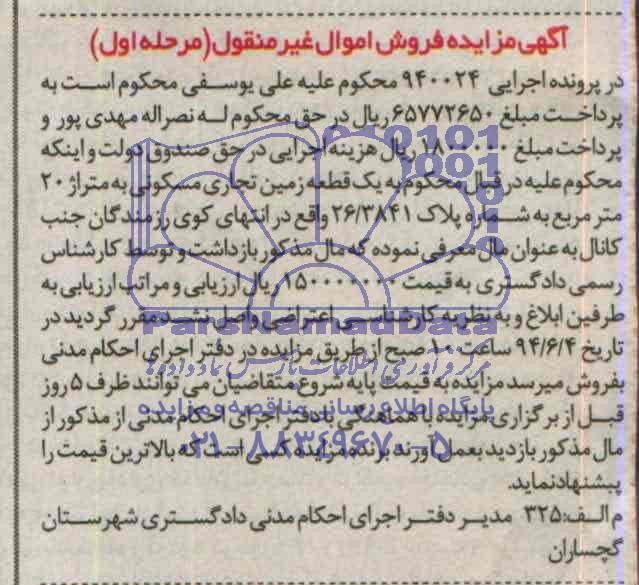 آگهی مزایده فروش اموال غیر منقول(مرحله اول)
در پرونده اجرایی ۹۴۰۰۲۴ محکوم علیه علی یوسفی محکوم است به
پرداخت مبلغ ۶۵۷۷۲۶۵۰ ریال در حق محکوم له نصراله مهدی پور و
پرداخت مبلغ ۱۸۰۰۰۰۰ ریال هزینه اجرایی در حق صندوق دولت و اینکه
محکوم علیه در قبال محکوم به یک قطعه زمین تجاری مسکونی به متراژ ۲۰
متر مربع به شماره پلاک ۲۶/۳۸۴۱ واقع در انتهای کوی رزمندگان جنب
کانال به عنوان مال معرفی نموده که مال مذکور بازداشت و توسط کارشناس
رسمی دادگستری به قیمت ۱۵۰۰۰۰۰۰۰ ریال ارزیابی و مراتب ارزیابی به
طرفین ابلاغ و به نظریه کارشناسی اعتراضی واصل نشد مقرر گردید در
تاریخ ۹۴/۶/۴ ساعت ۱۰ صبح از طریق مزایده در دفتر اجرای احکام مدنی
بفروش میرسد مزایده به قیمت پایه شروع متقاضیان می توانند ظرف ۵ روز
قبل از برگزاری مزایده با هماهنگی با دفتر اجرای احکام مدنی از مذکور از
مال مذکور بازدید بعمل آورند برنده مزایده کسی است که بالاترین قیمت را
پیشنهاد نماید.
م الف:۳۲۵ مدیر دفتر اجرای احکام مدنی دادگستری شهرستان
گچساران
ParsNamadData
مرکز فرآوری اطلاعات پارس نماد داده ها
پایگاه اطلاع رسانی مناقصه و مزایده
۰۲۱-۸۸۳۴۹۶۷۰-۵